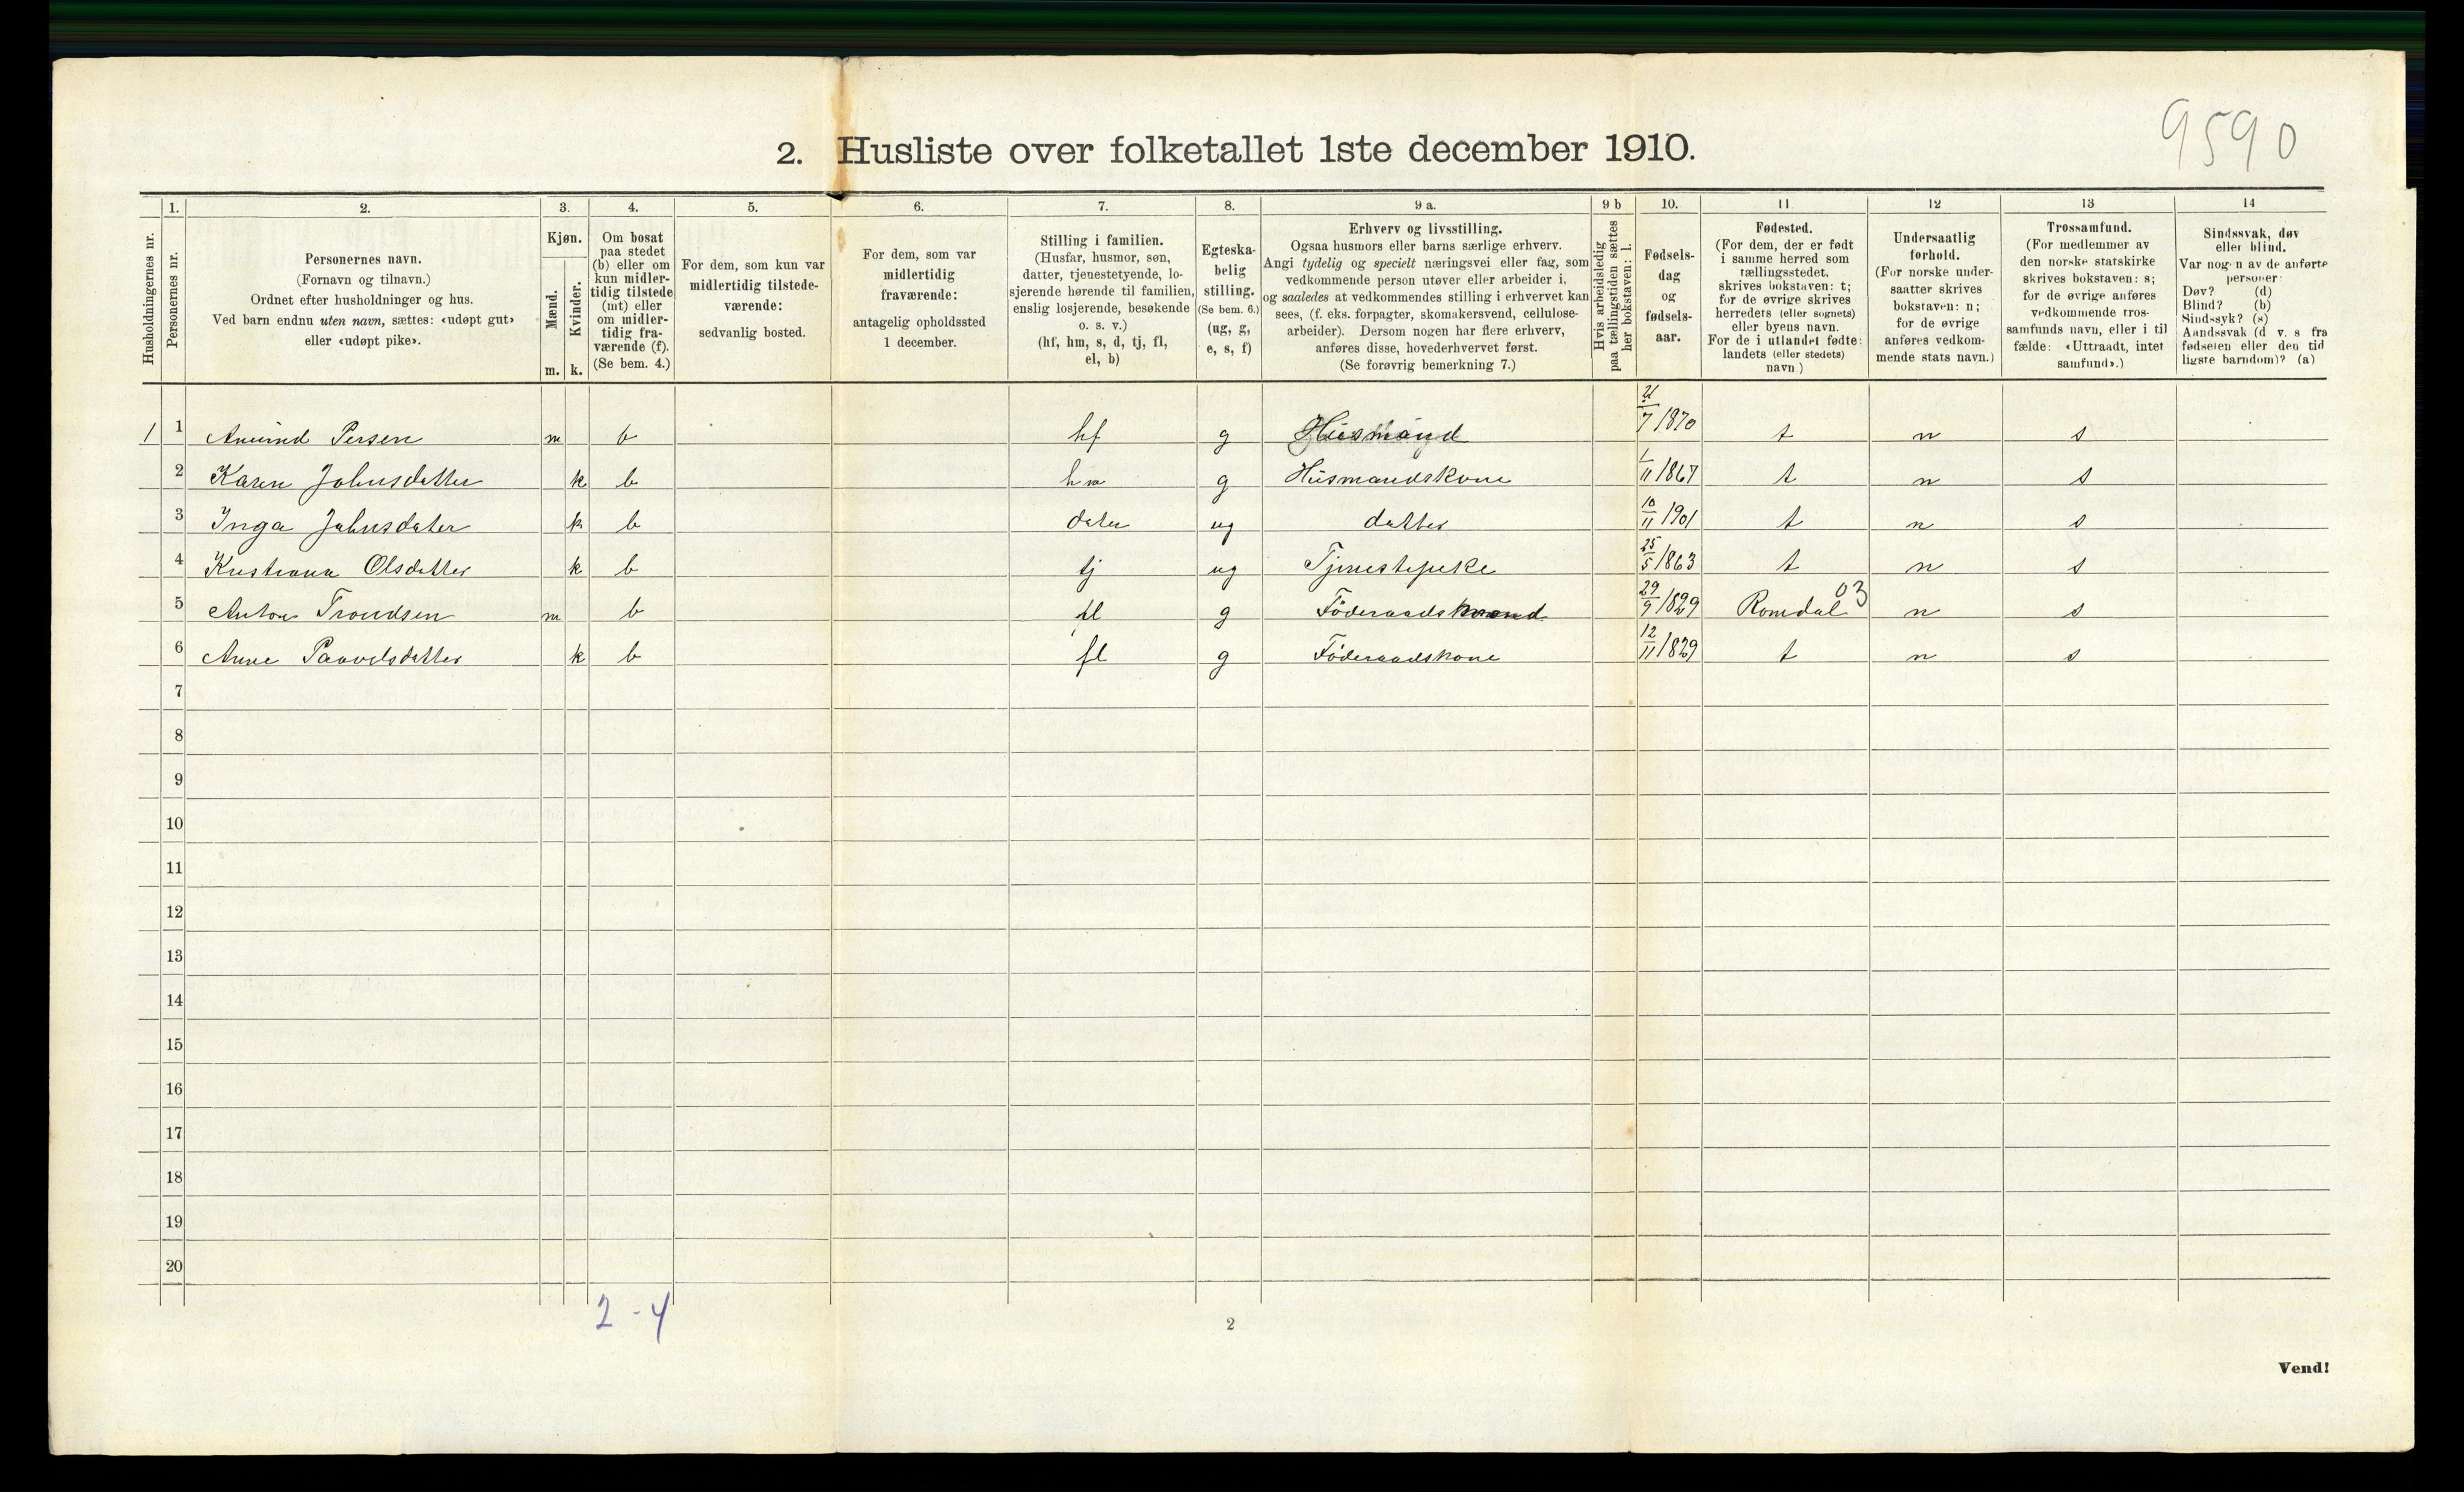 9590
2. Husliste over folketallet 1ste december 1910.
Husholdningernes nr.
1.
Personernes nr.
2.
Personernes navn.
(Fornavn og tilnavn.)
Ordnet efter husholdninger og hus.
Ved barn endnu uten navn, sættes: «udøpt gut»
eller «udøpt pike».
3.
Kjøn.
Mænd.
Kvinder.
m.
k.
4.
Om bosat
paa stedet
(b) eller om
kun midler-
tidig tilstede
(mt) eller
om midler-
tidig fra-
værende (f).
(Se bem. 4.)
5.
For dem, som kun var
midlertidig tilstede-
værende:
sedvanlig bosted.
6.
For dem, som var
midlertidig
fraværende:
antagelig opholdssted
1 december.
7.
Stilling i familien.
(Husfar, husmor, søn,
datter, tjenestetyende, lo-
sjerende hørende til familien,
enslig losjerende, besøkende
o. s. v.)
(hf, hm, s, d, tj, fl,
el, b)
8.
Egteska-
belig
stilling.
(Se bem. 6.)
(ug, g,
e, s, f)
9 a.
Erhverv og livsstilling.
Ogsaa husmors eller barns særlige erhverv.
Angi tydelig og specielt næringsvei eller fag, som
vedkommende person utøver eller arbeider i,
og saaledes at vedkommendes stilling i erhvervet kan
sees, (f. eks. forpagter, skomakersvend, cellulose-
arbeider). Dersom nogen har flere erhverv,
anføres disse, hovederhvervet først.
(Se forøvrig bemerkning 7.)
9 b
Hvis arbeidsledig
paa tællingstiden sættes
her bokstaven: l.
10.
Fødsels-
dag
og
fødsels-
aar.
11
Fødested.
(For dem, der er født
i samme herred som
tællingsstedet,
skrives bokstaven: t;
for de øvrige skrives
herredets (eller sognets)
eller byens navn.
For de i utlandet fødte:
landets (eller stedets)
navn.)
12
Undersaatlig
forhold.
(For norske under-
saatter skrives
bokstaven: n;
for de øvrige
anføres vedkom-
mende stats navn.)
13
Trossamfund.
(For medlemmer av
den norske statskirke
skrives bokstaven: s;
for de øvrige anføres
vedkommende tros-
samfunds navn, eller i til
fælde: «Uttraadt, intet
samfund».)
14
Sindssvak, døv
eller blind.
Var nogen av de anførte
personer:
Døv? (d)
Blind? (b)
Sindssyk? (s)
Aandssvak (d v. s fra
fødselen eller den tid
ligste barndom)? (a)
1 1 Amund Persen m b hf g Husmand 7/1870 t n s
2 Karen Johnsdatter k b hm g Husmandskone 1/11 1867 t n s
3 Inga Johnsdater k b dater ug datter 10/11 1901 t n s
4 Kristiana Olsdatter k b tj ug Tjenestepike 25/5 1863 t n s
5 Anton Trondsen m b fl g Föderaadsmand 29/9 1829 Romdal 03 n s
6 Anne Paavelsdatter k b fl g Föderaadskone 12/11 1829 t n s
7
8
9
10
11
12
13
14
15
16
17
18
19
20
2 - 4
2
Vend!